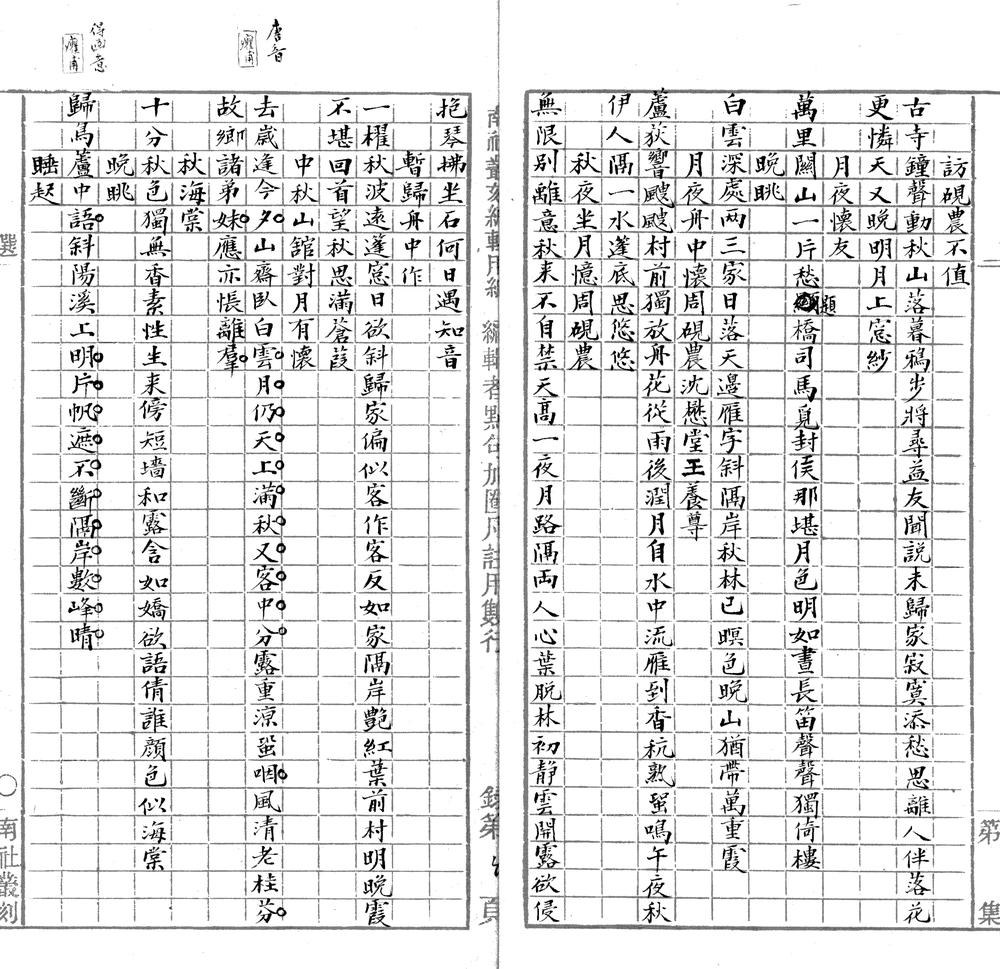 第 集
訪硯農不值
古寺鐘聲動秋山落暮鴉步將尋益友聞説未歸家寂寞添愁思離人伴落花
更憐天又晚明月上窓紗
月夜懷友
萬里關山一片愁題橋司馬覓封侯那堪月色明如晝長笛聲聲獨倚樓
晚眺
白雲深處兩三家日落天邊雁字斜隔岸秋林已暝色晚山猶帶萬重霞
月夜舟中懷周硯農沈懋堂王養尊
蘆荻響颼颼村前獨放舟花從雨後潤月自水中流雁到香秔熟蛩鳴午夜秋
伊人隔一水蓬底思悠悠
秋夜坐月憶周硯農
無限別離意秋来不自禁天高一夜月路隔両人心葉脱林初静雲開露欲侵
南社叢刻編輯用紙 編輯者點句加圈凡註用雙行 錄第 頁
抱琴拂坐石何日遇知音
暫歸舟中作
一櫂秋波遠蓬窓日欲斜歸家偏似客作客反如家隔岸艷紅葉前村明晚霞
不堪回首望秋思滿蒼葭
中秋山館對月有懷
唐音
癯甫
去歲逢今夕山齋臥白雲月仍天上滿秋又客中分露重涼蛩咽風清老桂芬
故鄉諸弟妹應亦悵離羣
秋海棠
十分秋色獨無香素性生来傍短墻和露含如嬌欲語倩誰顔色似海棠
晚眺
得画意
癯甫
歸鳥蘆中語斜陽溪上明片帆遮不斷隔岸數峰晴
睡起
選 〇 南社叢刻